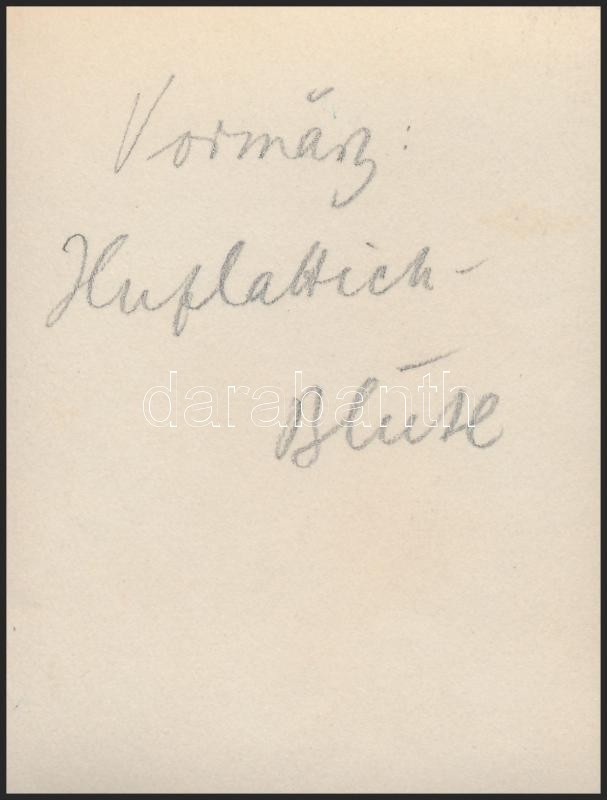 Vormärz:
Huflattich-
Blüte
darabanth